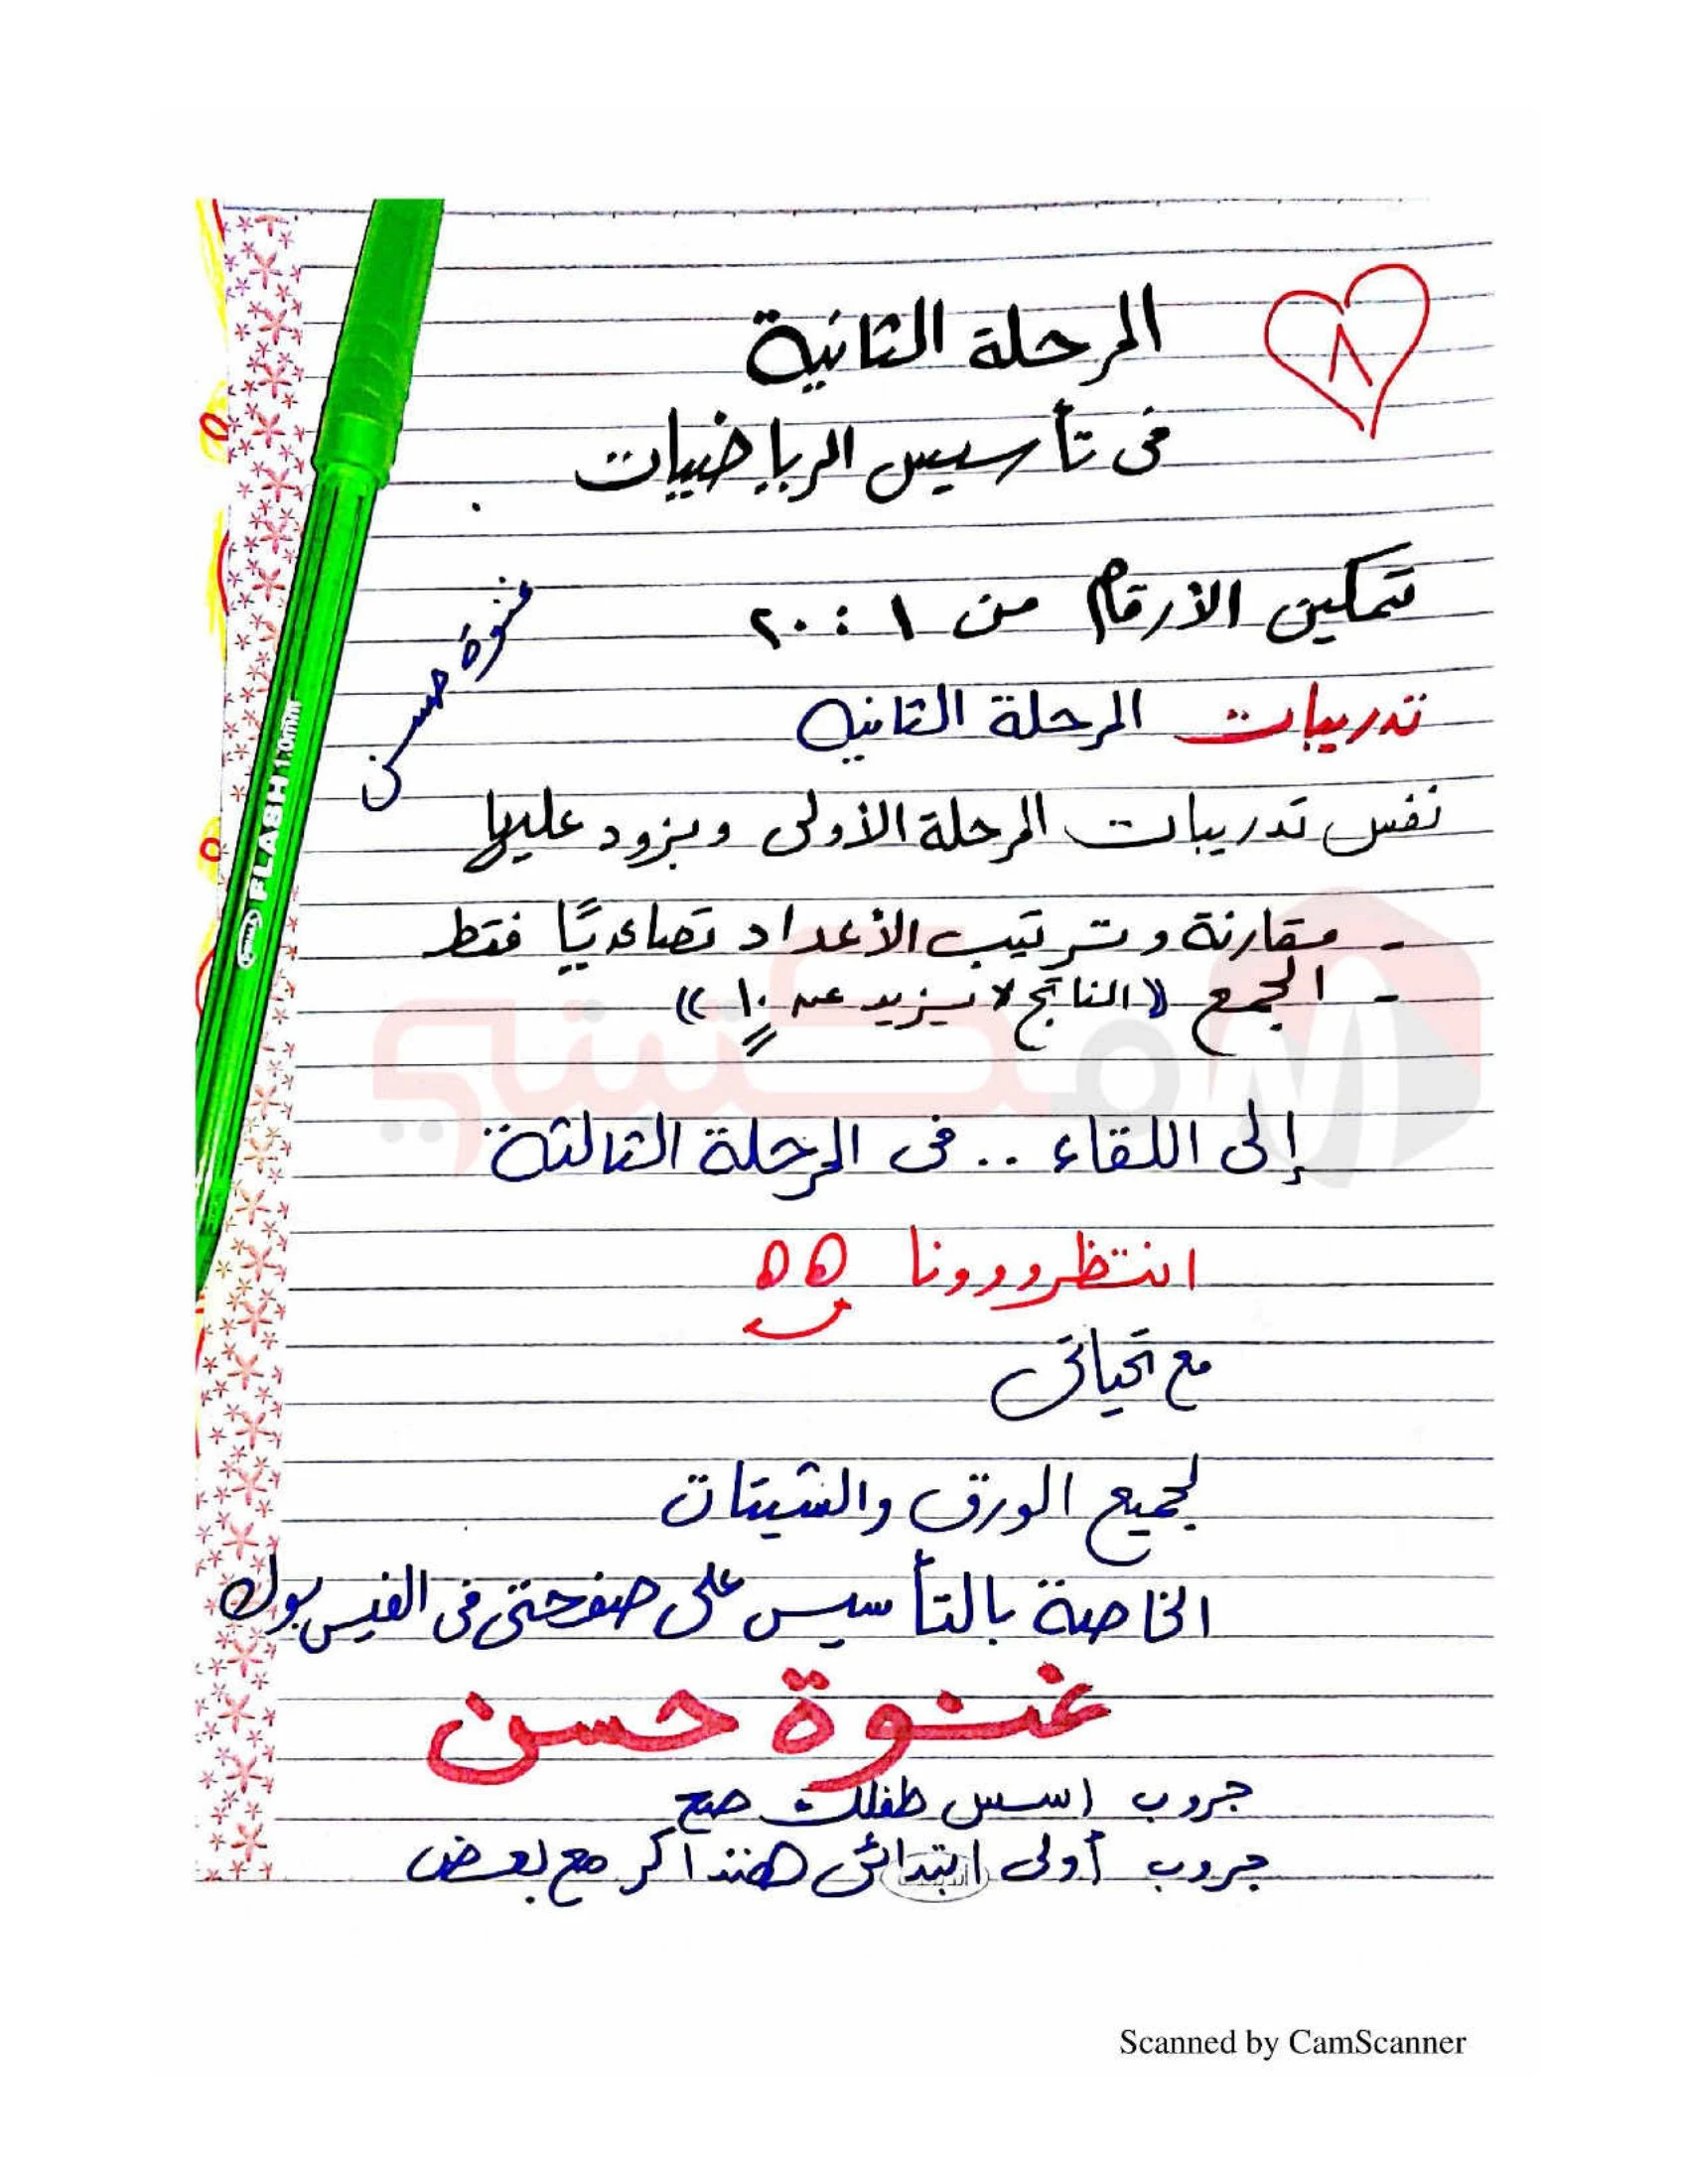 ٨
المرحلة الثانية
فى تأسيس الرياضيات
تمكين الأرقام من ١ : ٢٠
غنوة حسن
تدريبات المرحلة الثانيه
نفس تدريبات المرحلة الأولى ويزود عليها
- مقارنة وترتيب الأعداد تصاعديًا فقط
- الجمع (( الناتج لا يزيد عن ١٠ ))
مكتبتي
إلى اللقاء .. فى المرحلة الثالثة
انتظروورونا
مع تحياتى
لجميع الورق والشيتات
الخاصة بالتأسيس على صفحتى فى الفيس بوك
غنوة حسن
جروب اسس طفلك صح
جروب أولى ابتدائى هنذاكر مع بعض
FLASH 1.0mm
Scanned by CamScanner